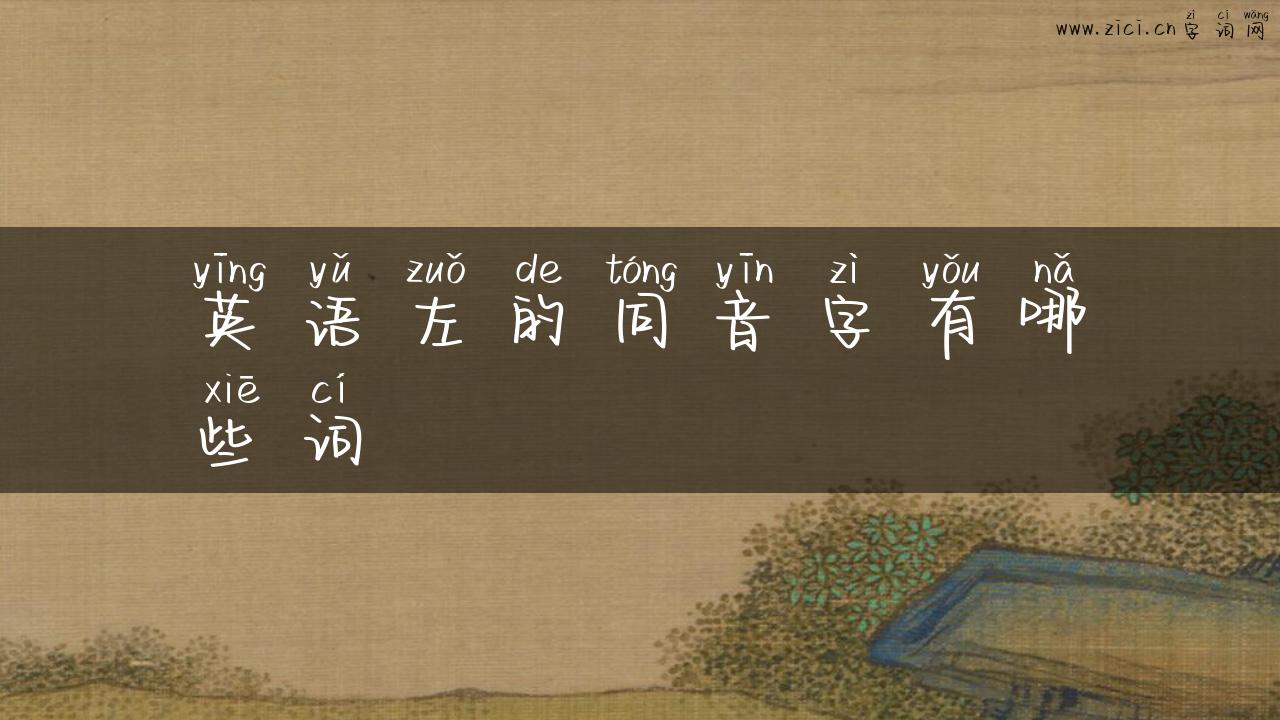 zì cí wǎng
www.zici.cn 字词网
yīng yǔ zuǒ de tóng yīn zì yǒu nǎ
英语左的同音字有哪
xiē cí
些词